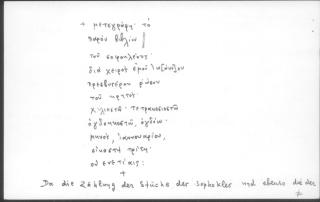 + μετεγράφη· τὸ
παρὸν βιβλίον
τοῦ σοφοκλέους·
διὰ χειρὸς ἐμοῦ
πρεσβυτέρου
τοῦ κρητός·
χιλιοστῶ· τετρακοσιοστῶ
ὀγδοηκοστῶ, ὀγδόω·
μηνὸς, ἰαννουαρίου,
εἰκοστῆ τρίτη·
οὐενετίαις:
+
Da die Zählung der Stücke des Sophokles und ebenso die der